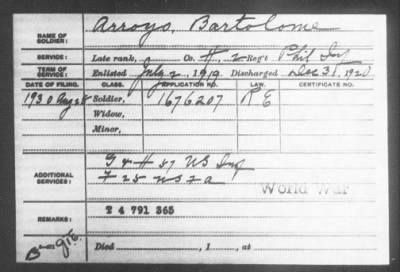 NAME OF SOLDIER: Arroyo, Bartolome
SERVICE: Late rank, Co. H, 2 Reg't Phil Inf
TERM OF SERVICE: Enlisted July 2, 1919. Discharged Dec 31, 1920
DATE OF FILING. CLASS. APPLICATION NO. LAW. CERTIFICATE NO.
1930 Aug 28 Soldier, 1676207 R E
Widow,
Minor,
ADDITIONAL SERVICES: G & H 57 US Inf
F 25 US FA
World War
REMARKS: 2 4 791 365
Died , 1 , at